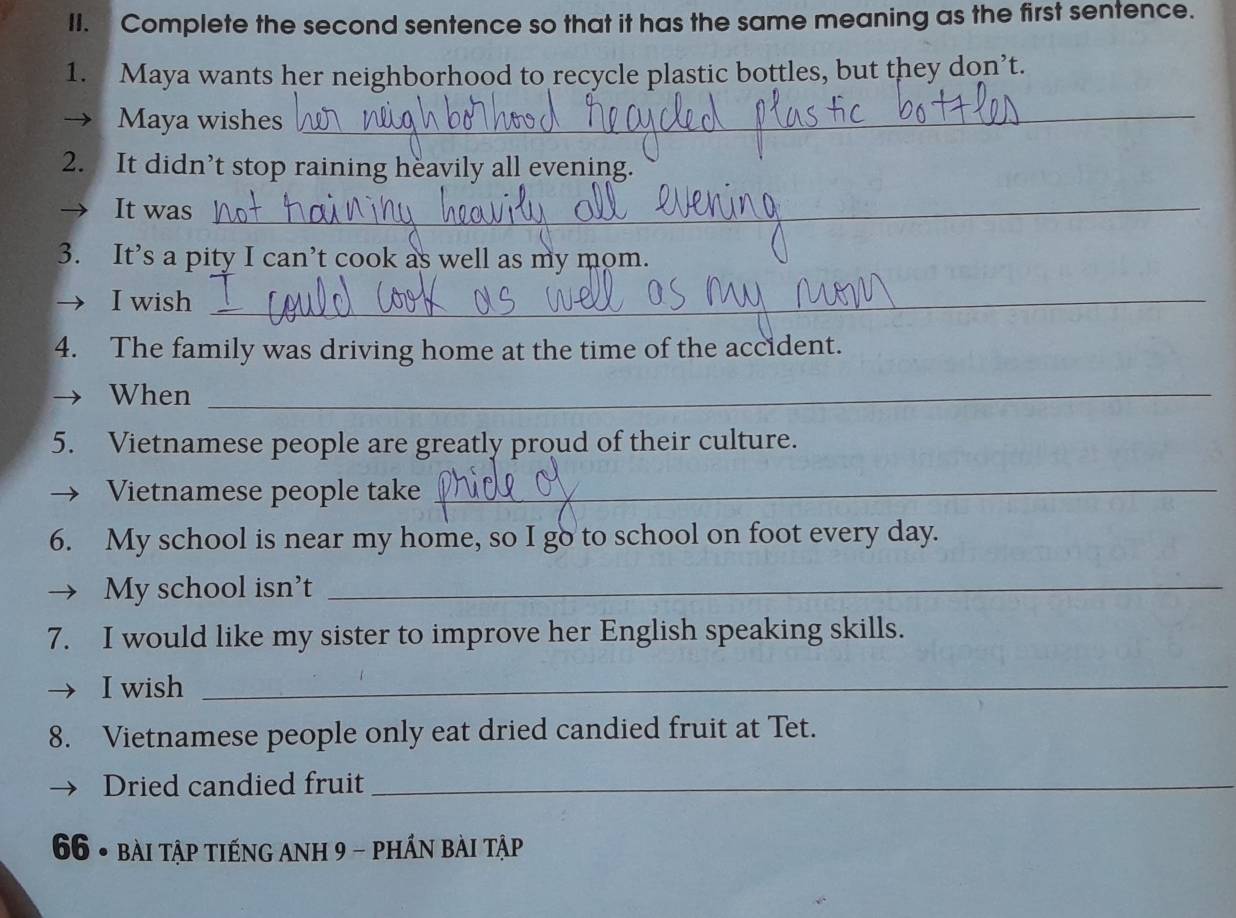 II. Complete the second sentence so that it has the same meaning as the first sentence.
1. Maya wants her neighborhood to recycle plastic bottles, but they don't.
→ Maya wishes her neighborhood recycled plastic bottles
2. It didn't stop raining heavily all evening.
→ It was not raining heavily all evening
3. It's a pity I can't cook as well as my mom.
→ I wish I could cook as well as my mom
4. The family was driving home at the time of the accident.
→ When
5. Vietnamese people are greatly proud of their culture.
→ Vietnamese people take pride of
6. My school is near my home, so I go to school on foot every day.
→ My school isn't
7. I would like my sister to improve her English speaking skills.
→ I wish
8. Vietnamese people only eat dried candied fruit at Tet.
→ Dried candied fruit
66 • BÀI TẬP TIẾNG ANH 9 – PHẦN BÀI TẬP